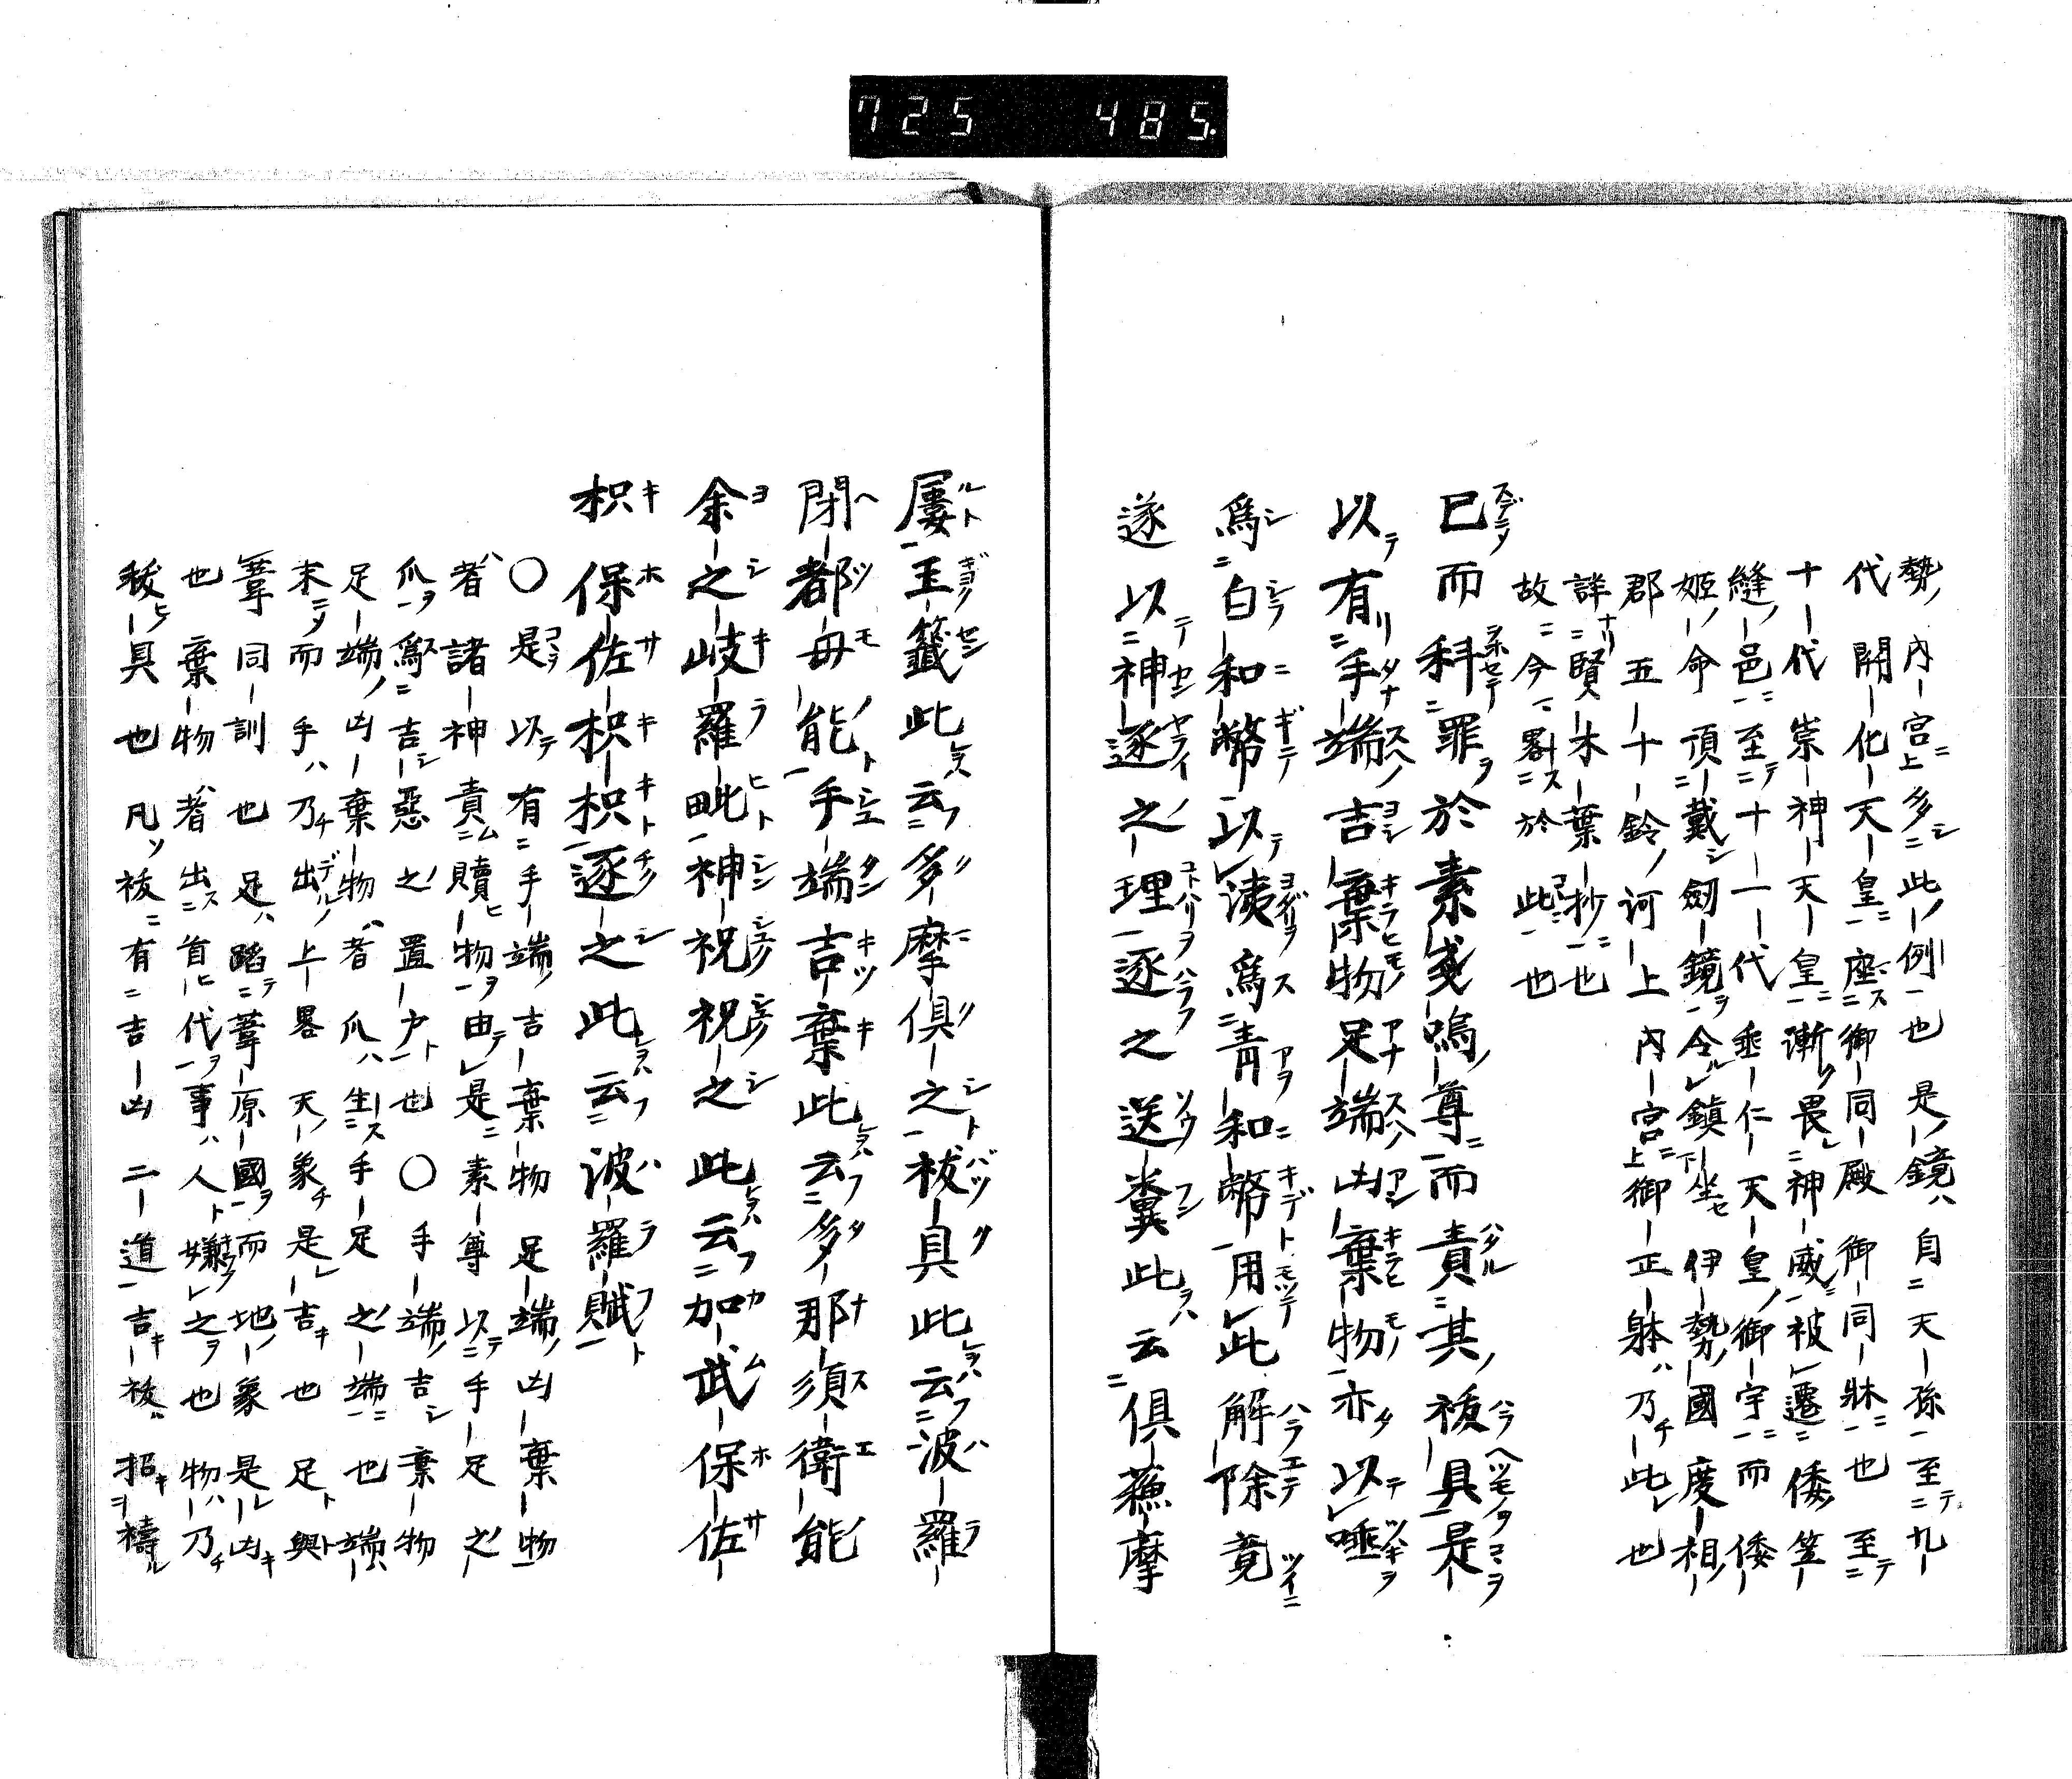 725 485.
勢ノ内宮ニ多シ此ノ例也是ノ鏡ハ自天孫至テ九
代開化天皇座ス御同殿御同牀ニ也至テ
十代崇神天皇ニ漸ク畏神威ニ被遷倭ノ笠
縫ノ邑ニ至テ十一代垂仁天皇ノ御宇ニ而倭
姬ノ命頂戴シ劔鏡ヲ令ル鎮坐セ伊勢ノ國度相
郡五十鈴ノ河上内宮ニ御正躰ハ乃チ此レ也
詳ナリ賢木葉抄ニ也
故ニ今畧ス於此ニ也
已而科罪ヲ於素戔嗚ノ尊ニ而責其ノ祓具是
以テ有リ手端吉棄物足端凶棄物亦以テ唾
爲シ白和幣以テ洟爲ス青和幣用此解除竟
遂以テ神逐之理逐之送糞此云倶蘓摩
屢玉籤此云多摩倶之祓具此云波羅
閉都毋能手端吉棄此云多那須衛能
余之岐羅毗神祝祝之此云加武保佐
枳保佐枳枳逐之此云波羅賦
○是以テ有手端ノ吉棄物足端ノ凶棄物
者ハ諸神責ム贖物ヲ由テ是ニ素尊以テ手足之
爪ヲ爲ス吉惡之ノ置戸ト也○手端ノ吉棄物
足端ノ凶棄物ハ者爪ハ生ス手足之ノ端ニ也端ハ
末ニメ而手ハ乃チ出ル上畧天ノ象チ是レ吉キ也足ト與
葦同訓也足ハ蹈テ葦原國ヲ而地ノ象是レ凶キ
也棄物ハ者出ス首代ヲ事ハ人ト嫌之ヲ也物ハ乃チ
祓具也凡ソ祓ニ有吉凶二道吉キ祓ハ招キヲ禱ル